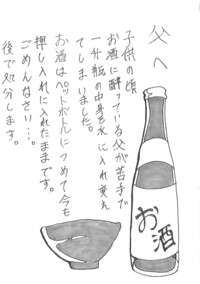 父へ
子供の頃
お酒に酔っている父が苦手で
一升瓶の中身を水に入れ変え
てしまいました。
お酒はペットボトルにつめて今も
押し入れに入れたままです。
ごめんなさい…。
後で処分します。
お酒